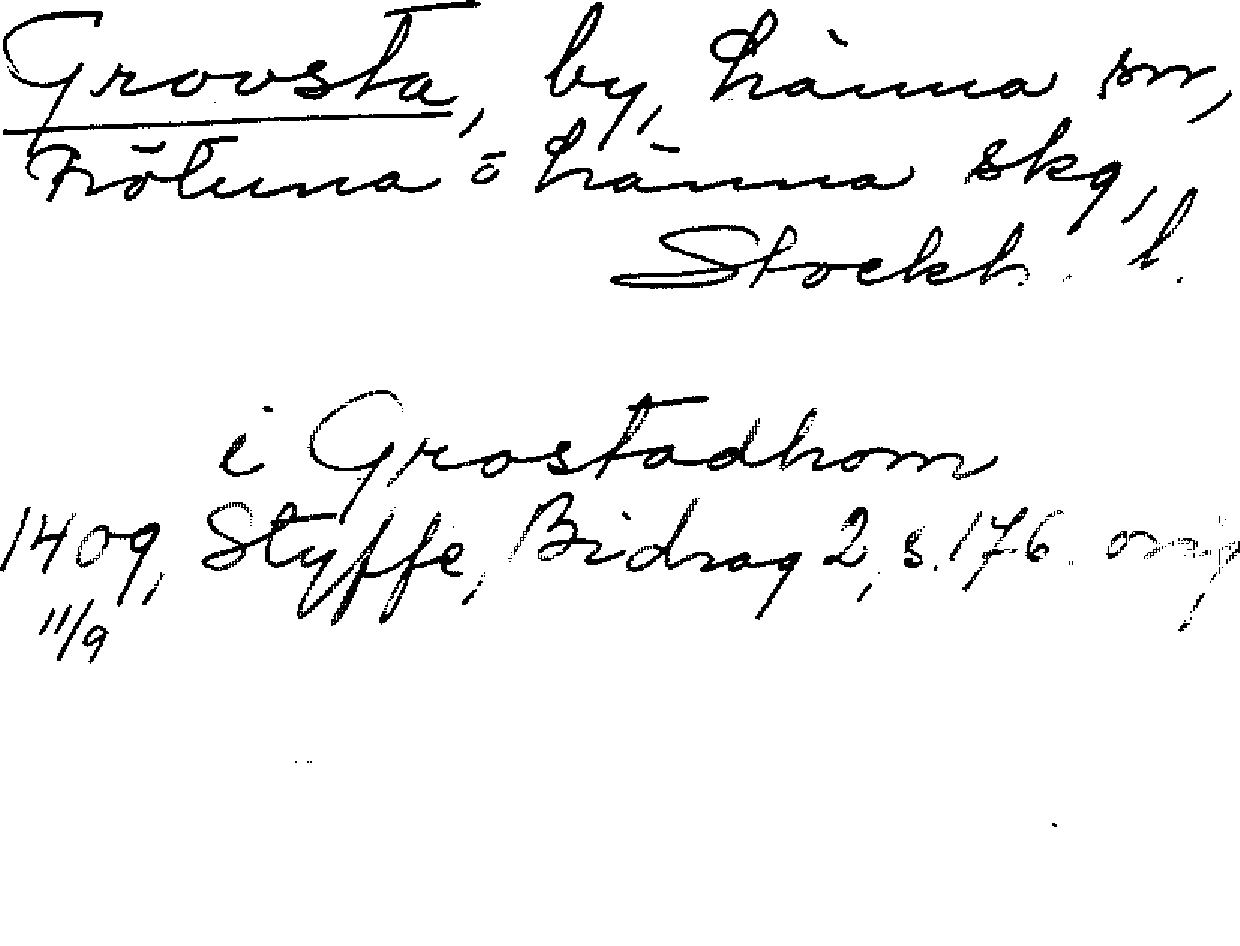 Grovsta, by, Länna sn,
Frötuna o Länna skg,
Stockh. l.
i Grostadhom
1409, Styffe, Bidrag 2, s. 176. orig,
11/9